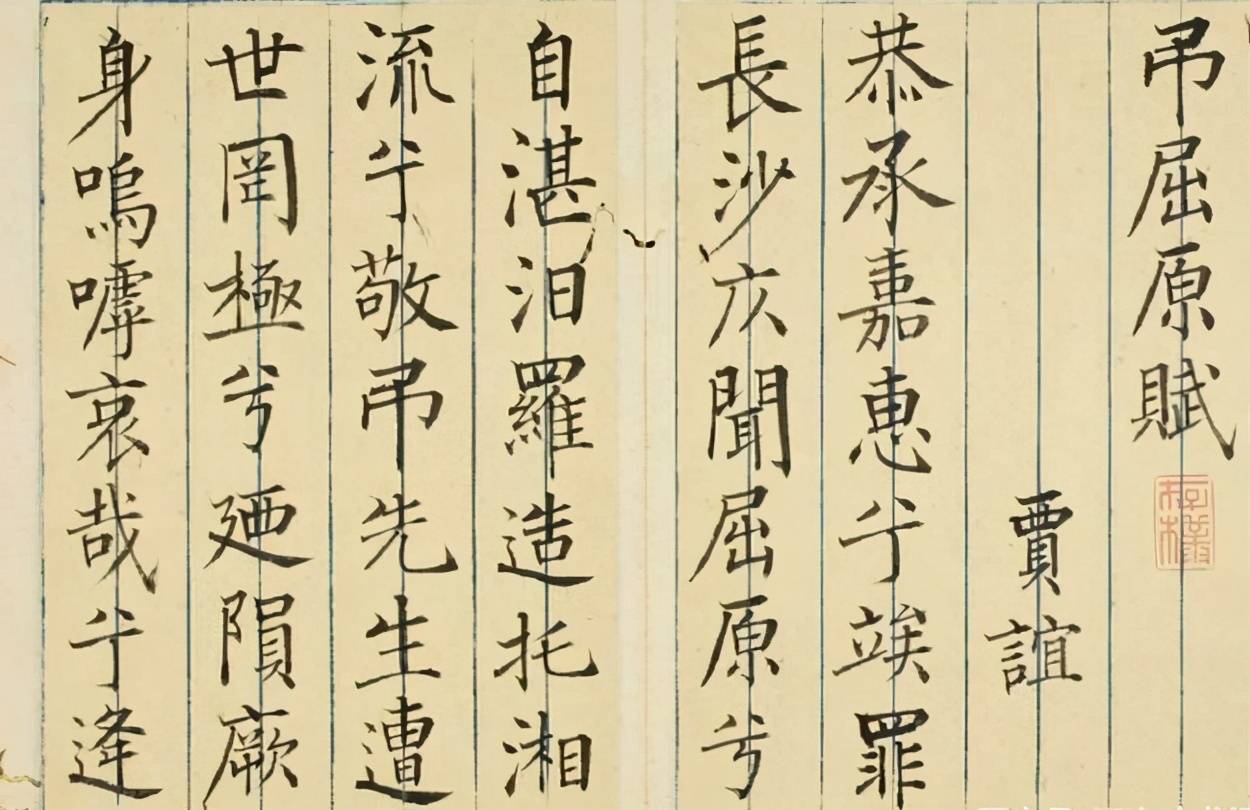 吊屈原賦
賈誼
恭承嘉惠兮竢罪
長沙庂聞屈原兮
自湛汨羅造托湘
流兮敬吊先生遭
世罔極兮廼隕厥
身嗚嘑哀哉兮逢